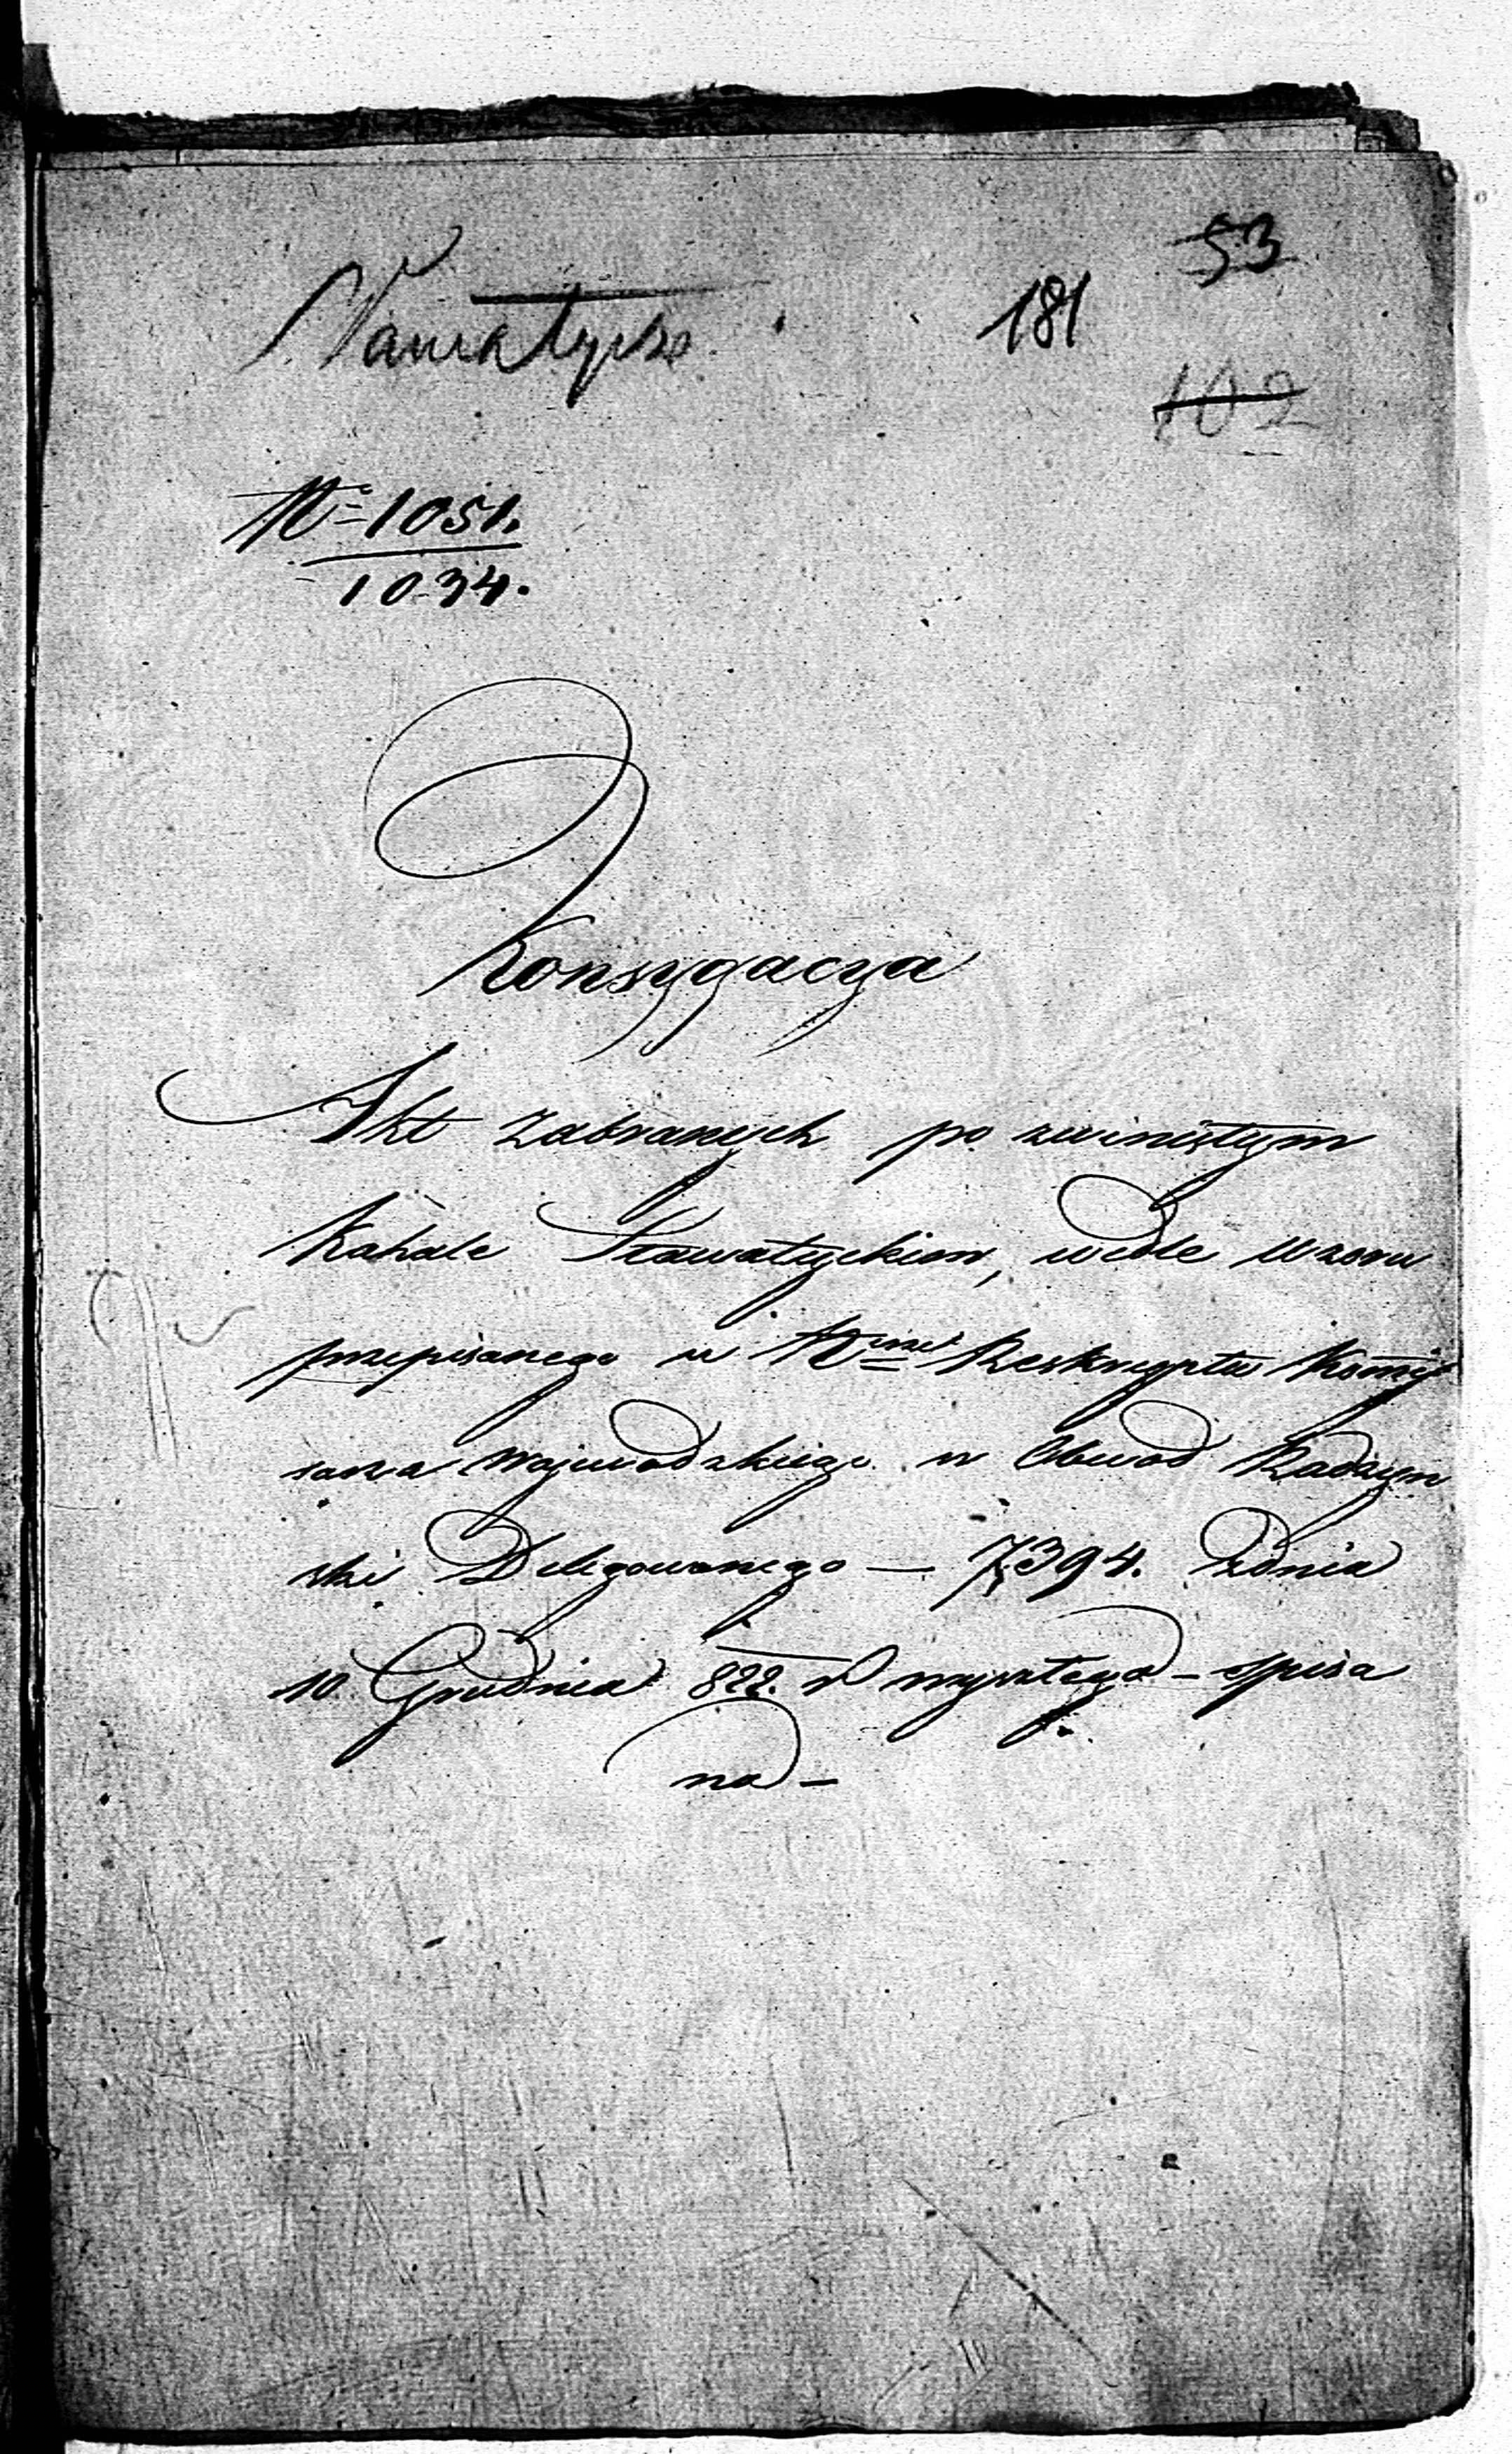 53
Sławatycze 181
102
N= 1051.
1034.
Konsygnacya
Akt zabranych po zwiniętym
Kahale Sławatyckim, wedle wzoru
przepisanego w Reskryptu Kommi
sarza Wojewodzkiego w Obwod Radzyn
ski Delegowanego — 7394. z dnia
10 Grudnia 822. r wyszłego - spisa
na -